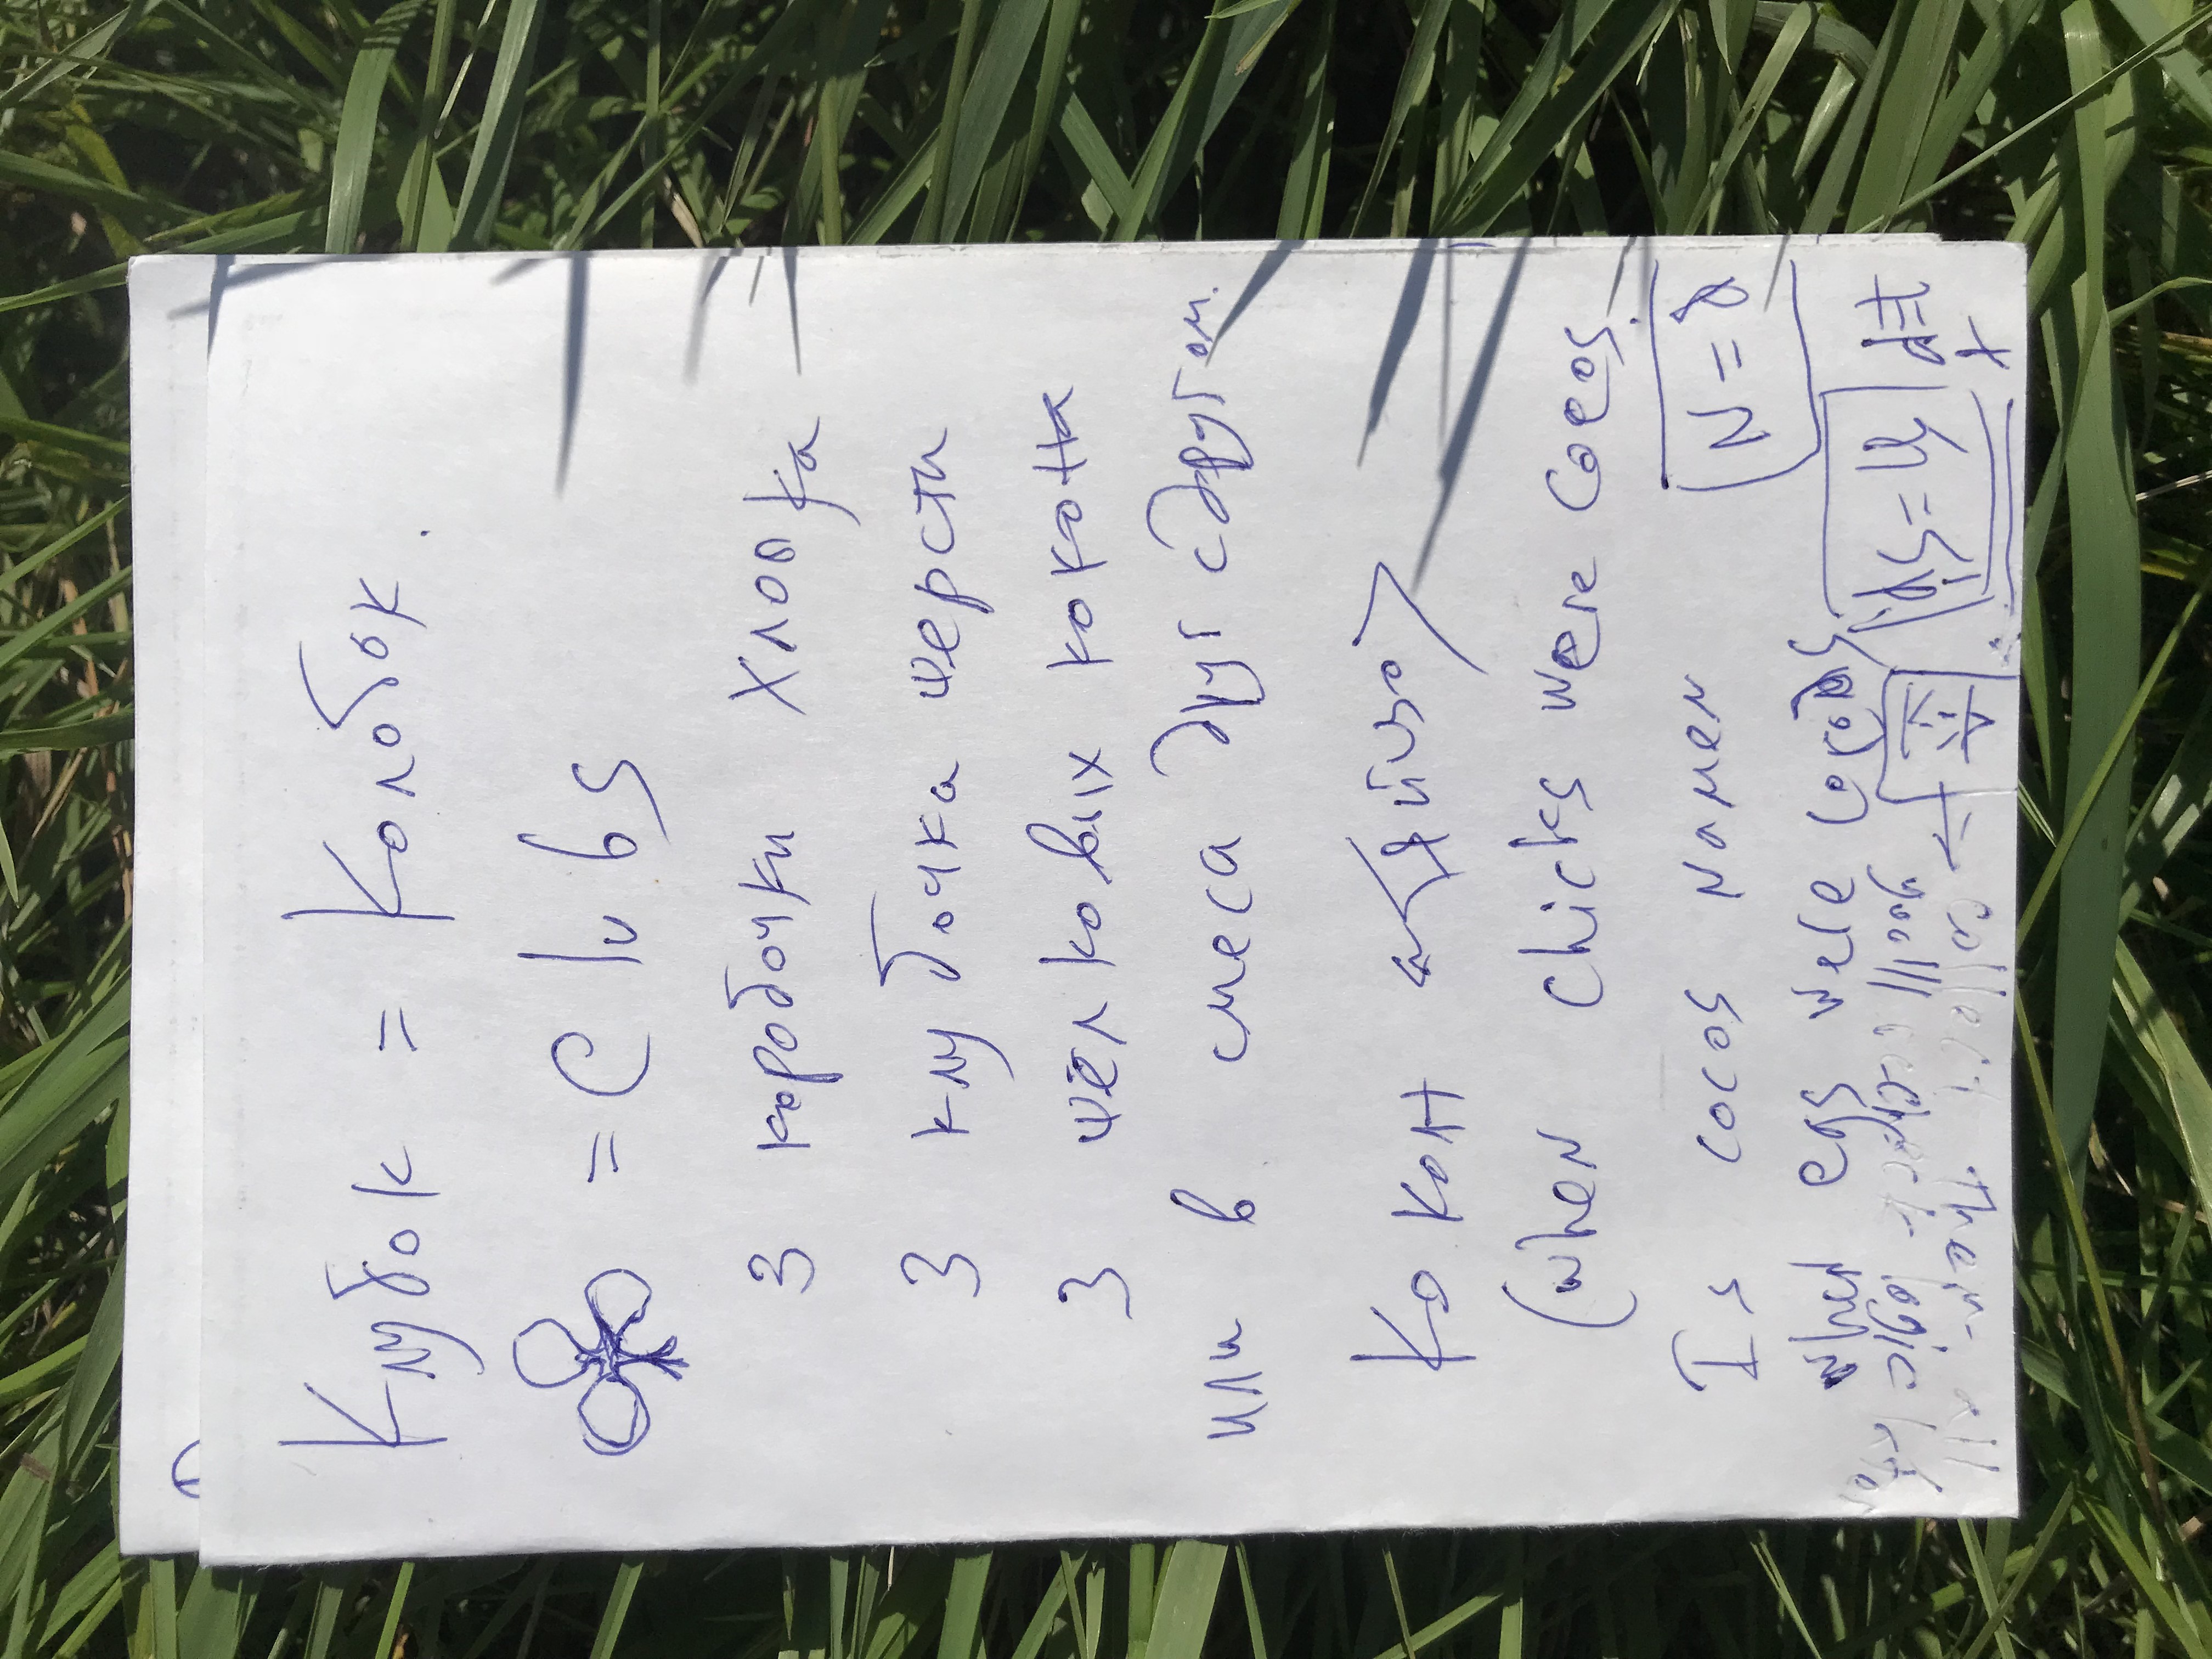 Клубок = Колобок.
♣ = Clubs
3 коробочки хлопка
3 клубочка шерсти
3 шёлковых кокона
или в смеса друг с другом.
Кокон <яйцо>
(when chicks were cocos.
Is cocos namen
N=
when egs were